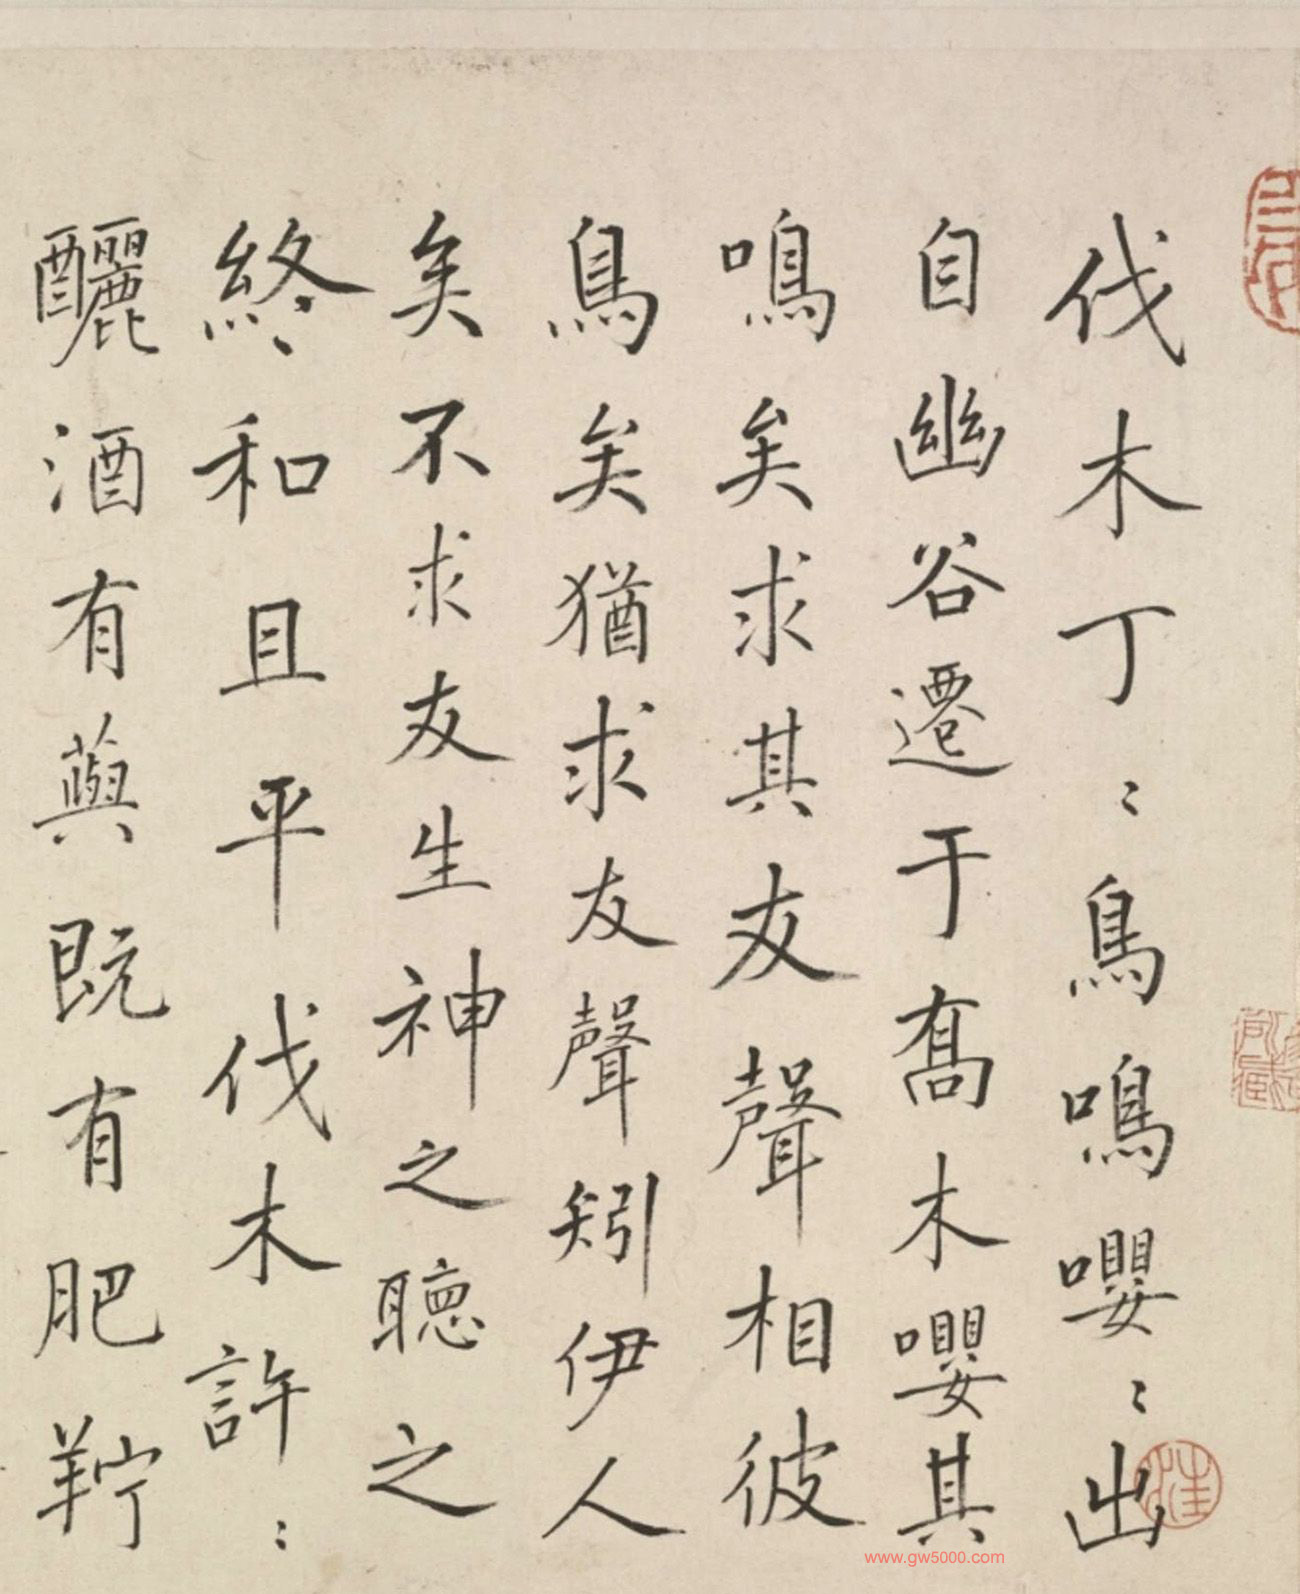 伐木丁〻鳥鳴嚶〻出
自幽谷遷于喬木嚶其
鳴矣求其友聲相彼
鳥矣猶求友聲矧伊人
矣不求友生神之聽之
終和且平伐木許〻
釃酒有藇既有肥羜
www.gw5000.com